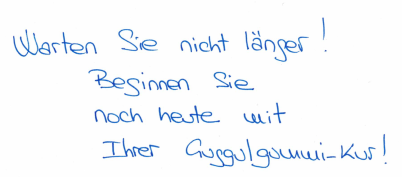 Warten Sie nicht länger!
Beginnen Sie
noch heute mit
Ihrer Guggulgummi-Kur!